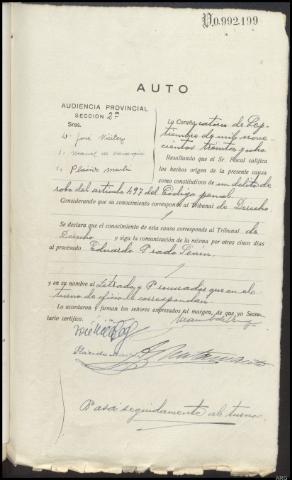 V.0.992.199
AUTO
AUDIENCIA PROVINCIAL
SECCIÓN 2ª
Sres.
D. José
Plácido Martín
La Coruña catorce de Sep-
tiembre de mil nove-
cientos treinta y ocho
Resultando que el Sr. Fiscal califica
los hechos origen de la presente causa
como constitutivos de un delito de
robo del artículo 497 del Código penal.
Considerando que su conocimiento corresponde al Tribunal de Derecho
Se declara que el conocimiento de esta causa corresponde al Tribunal de
Derecho y siga la comunicación de la misma por otros cinco días
al procesado Eduardo Prado
y en su nombre al Letrado y Procurador que en el
turno de oficio le correspondan.
Lo acordaron y firman los señores expresados al margen, de que yo Secre-
tario certifico.
Pasa seguidamente al turno.